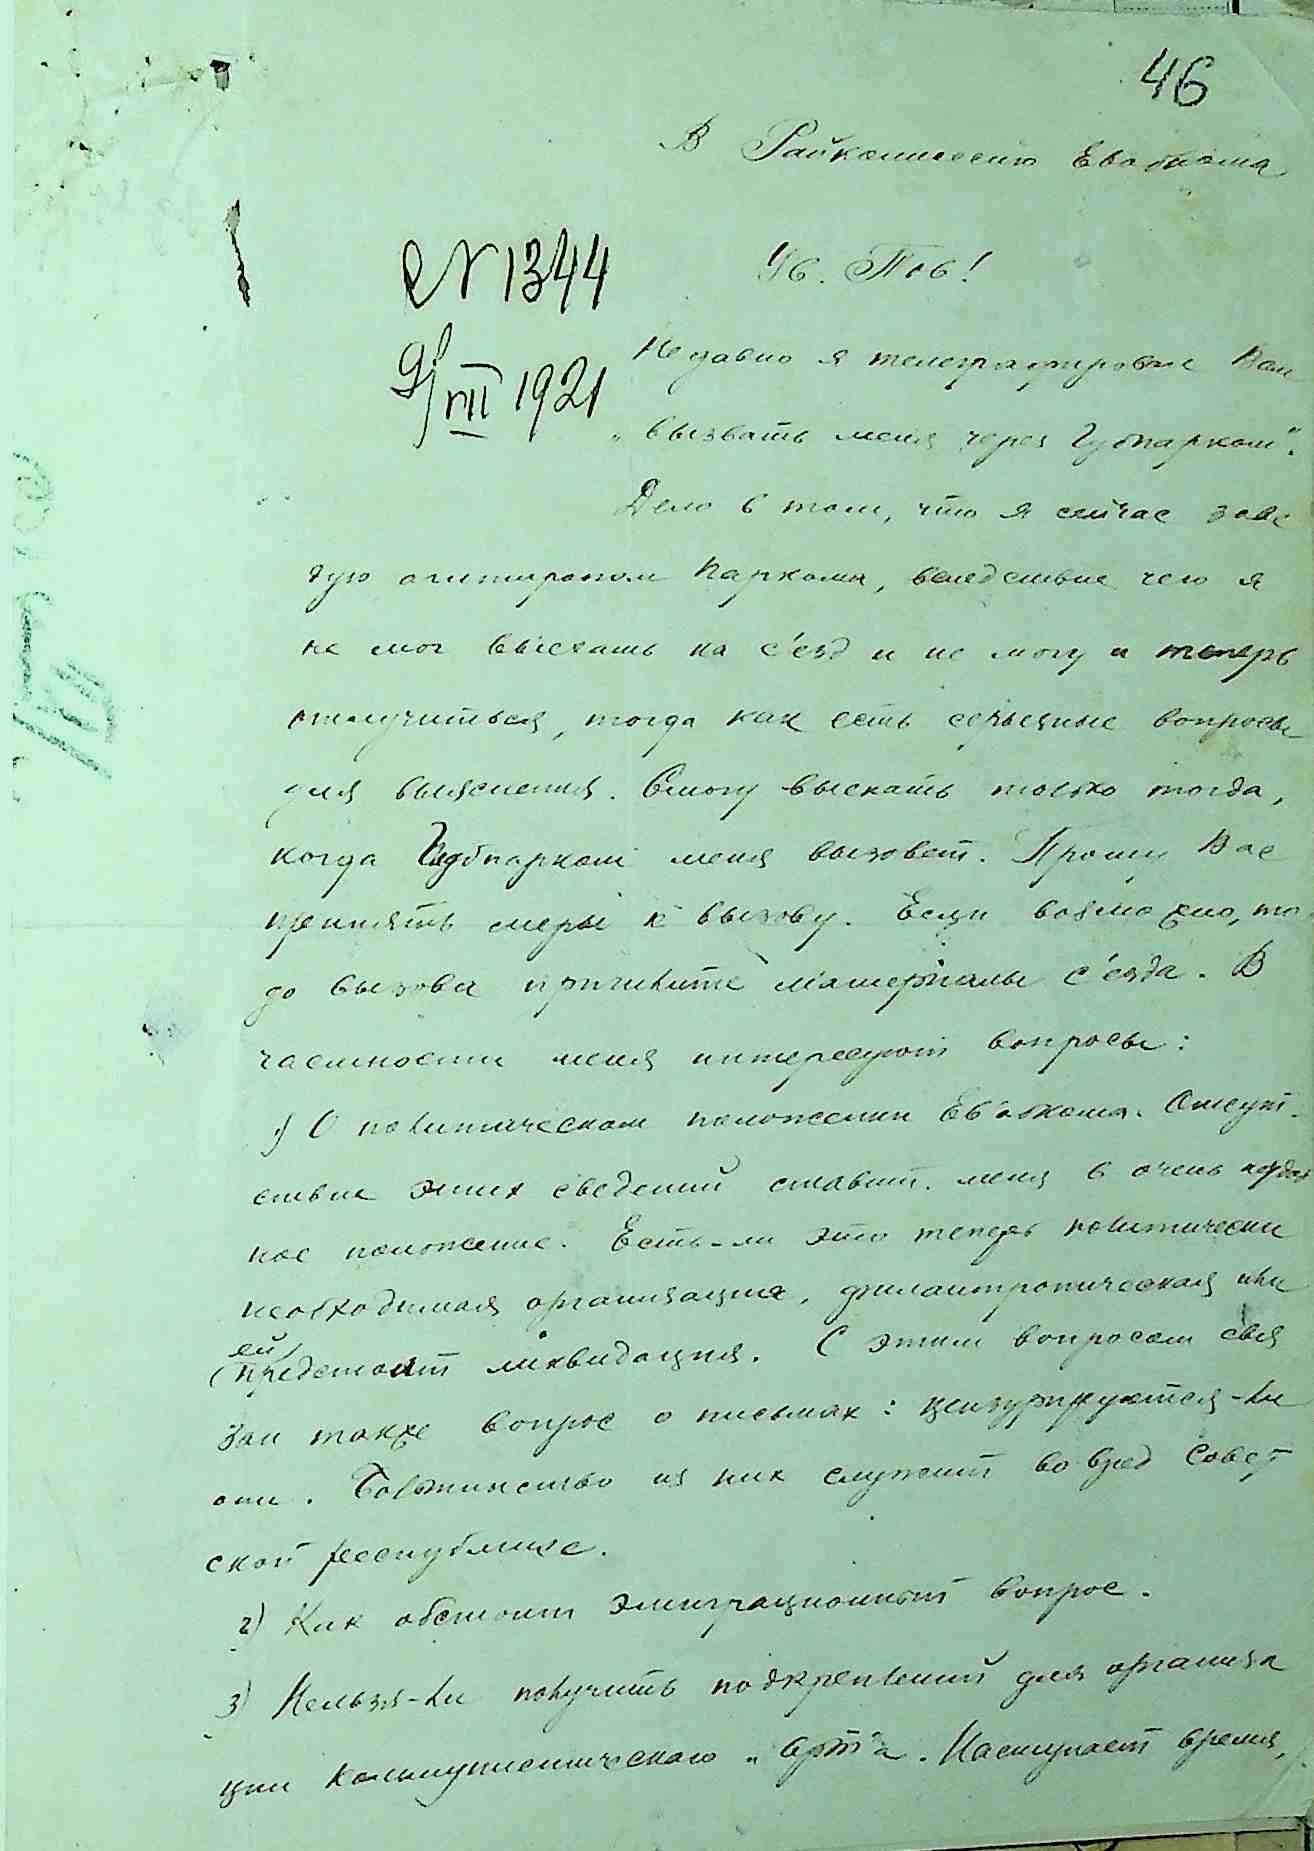 46
В Райкомиссию Евобкома
Ув. Тов!
№ 1344
9/VIII 1921
Недавно я телеграфировал Вам
„вызвать меня через Губпарком".
Дело в том, что я сейчас заве
дую агитпропом Паркома, вследствие чего я
не мог выехать на с'езд и не могу и теперь
отлучиться, тогда как есть серьезные вопросы
для выяснения. Смогу выехать только тогда,
когда Губпарком меня вызовет. Прошу Вас
принять меры к вызову. Если возможно, то
до вызова пришлите материалы с'езда. В
частности меня интересуют вопросы:
1) О политическом положении Ев'обкома. Отсут-
ствие этих сведений ставит меня в очень
ное положение. Есть-ли это теперь политически
необходимая организация, филантропическая или
ей
предстоит ликвидация. С этим вопросом свя
зан также вопрос о письмах: цензурируются-ли
они. Большинство из них служит во вред Совет
ской республике.
2) Как обстоит эмиграционный вопрос.
3) Нельзя-ли получить подкреплений для организа
ции Коммунистического „ Наступает время,